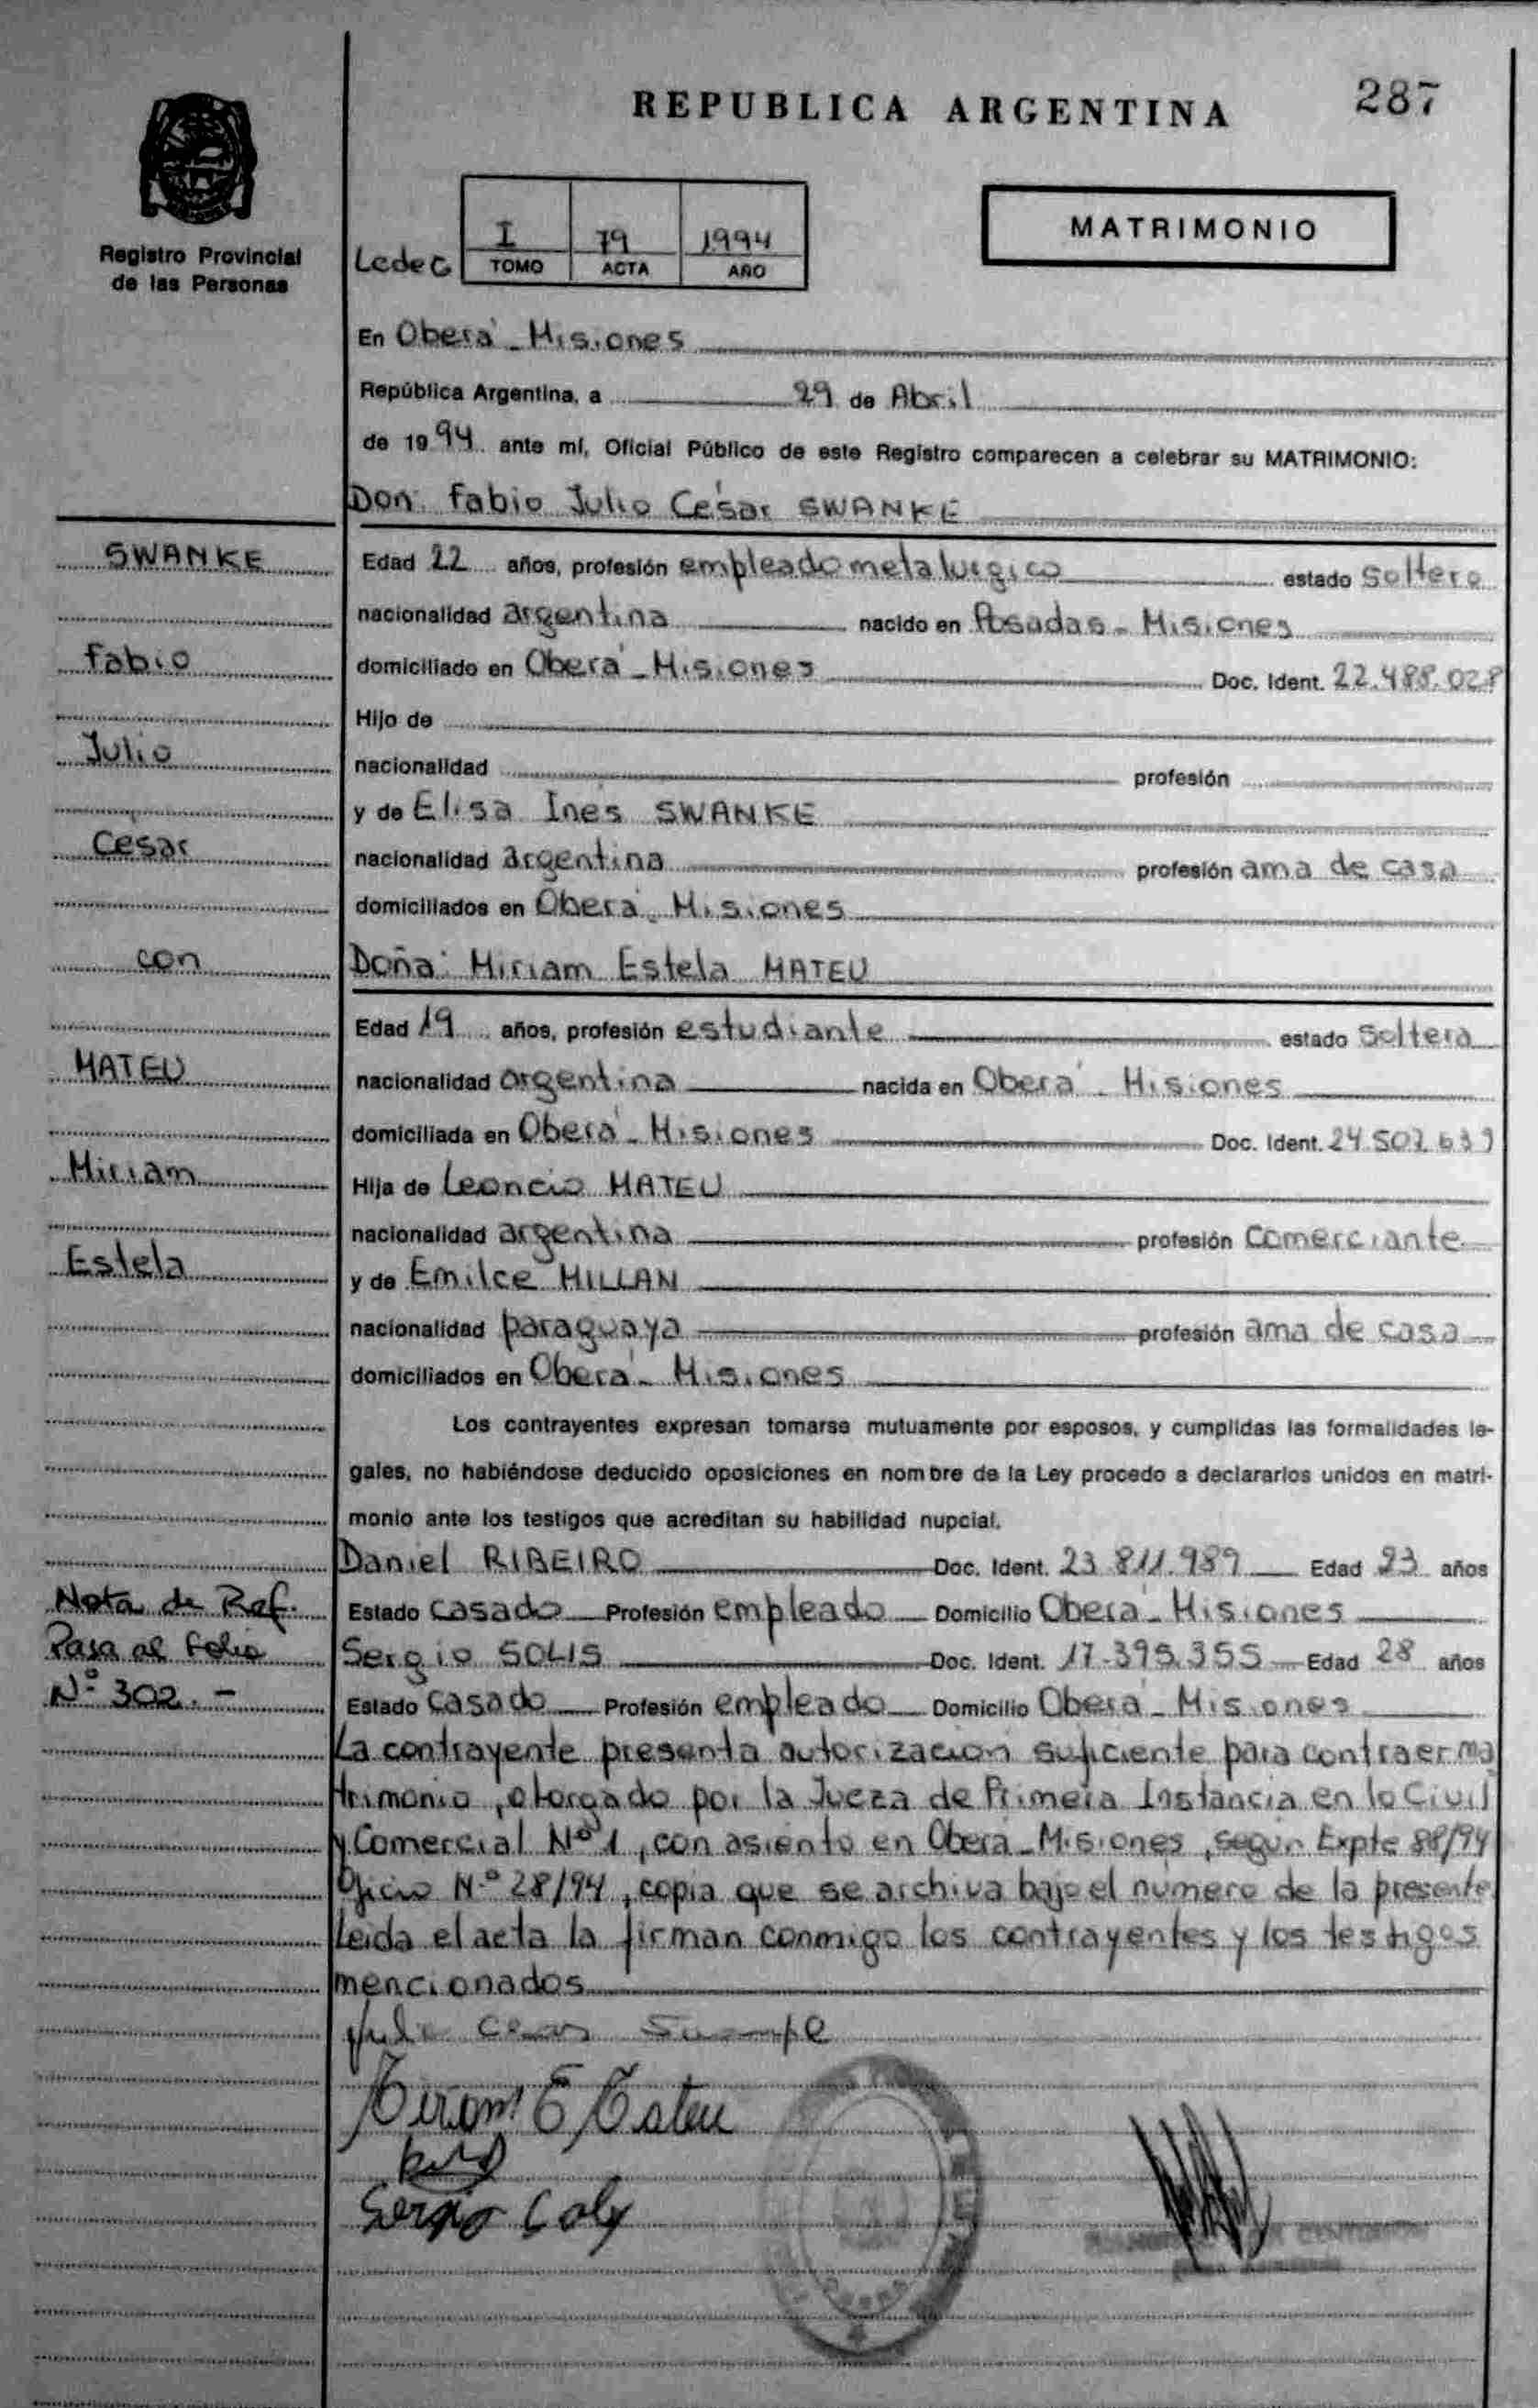 REPUBLICA ARGENTINA
287
Registro Provincial
de las Personas
I 79 1994
TOMO ACTA AÑO
MATRIMONIO
En Oberá - Misiones
República Argentina, a 29 de Abril
de 1994 ante mí, Oficial Público de este Registro comparecen a celebrar su MATRIMONIO:
Don: Fabio Julio César SWANKE
SWANKE
Fabio
Julio
Cesar
con
MATEU
Miriam
Estela
Edad 22 años, profesión empleado metalurgico estado Soltero
nacionalidad argentina nacido en Posadas - Misiones
domiciliado en Oberá - Misiones Doc. Ident. 22.488.028
Hijo de
nacionalidad profesión
y de Elisa Ines SWANKE
nacionalidad argentina profesión ama de casa
domiciliados en Oberá - Misiones
Doña: Miriam Estela MATEU
Edad 19 años, profesión estudiante estado Soltera
nacionalidad argentina nacida en Oberá - Misiones
domiciliada en Oberá - Misiones Doc. Ident.
Hija de Leoncio MATEU
nacionalidad argentina profesión Comerciante
y de Emilce MILLAN
nacionalidad paraguaya profesión ama de casa
domiciliados en Oberá - Misiones
Los contrayentes expresan tomarse mutuamente por esposos, y cumplidas las formalidades le-
gales, no habiéndose deducido oposiciones en nombre de la Ley procedo a declararlos unidos en matri-
monio ante los testigos que acreditan su habilidad nupcial.
Daniel RIBEIRO Doc. Ident. 23.811.989 Edad 23 años
Estado Casado Profesión empleado Domicilio Oberá - Misiones
Sergio SOLIS Doc. Ident. 17.395.355 Edad 28 años
Estado Casado Profesión empleado Domicilio Oberá - Misiones
Nota de Ref.
Pasa al folio
Nº 302.-
La contrayente presenta autorización suficiente para contraer ma
trimonio, otorgado por la Jueza de Primera Instancia en lo Civil
y Comercial Nº 1, con asiento en Oberá - Misiones, según Expte 88/94
Oficio Nº 28/94, copia que se archiva bajo el número de la presente
Leida el acta la firman conmigo los contrayentes y los testigos
mencionados